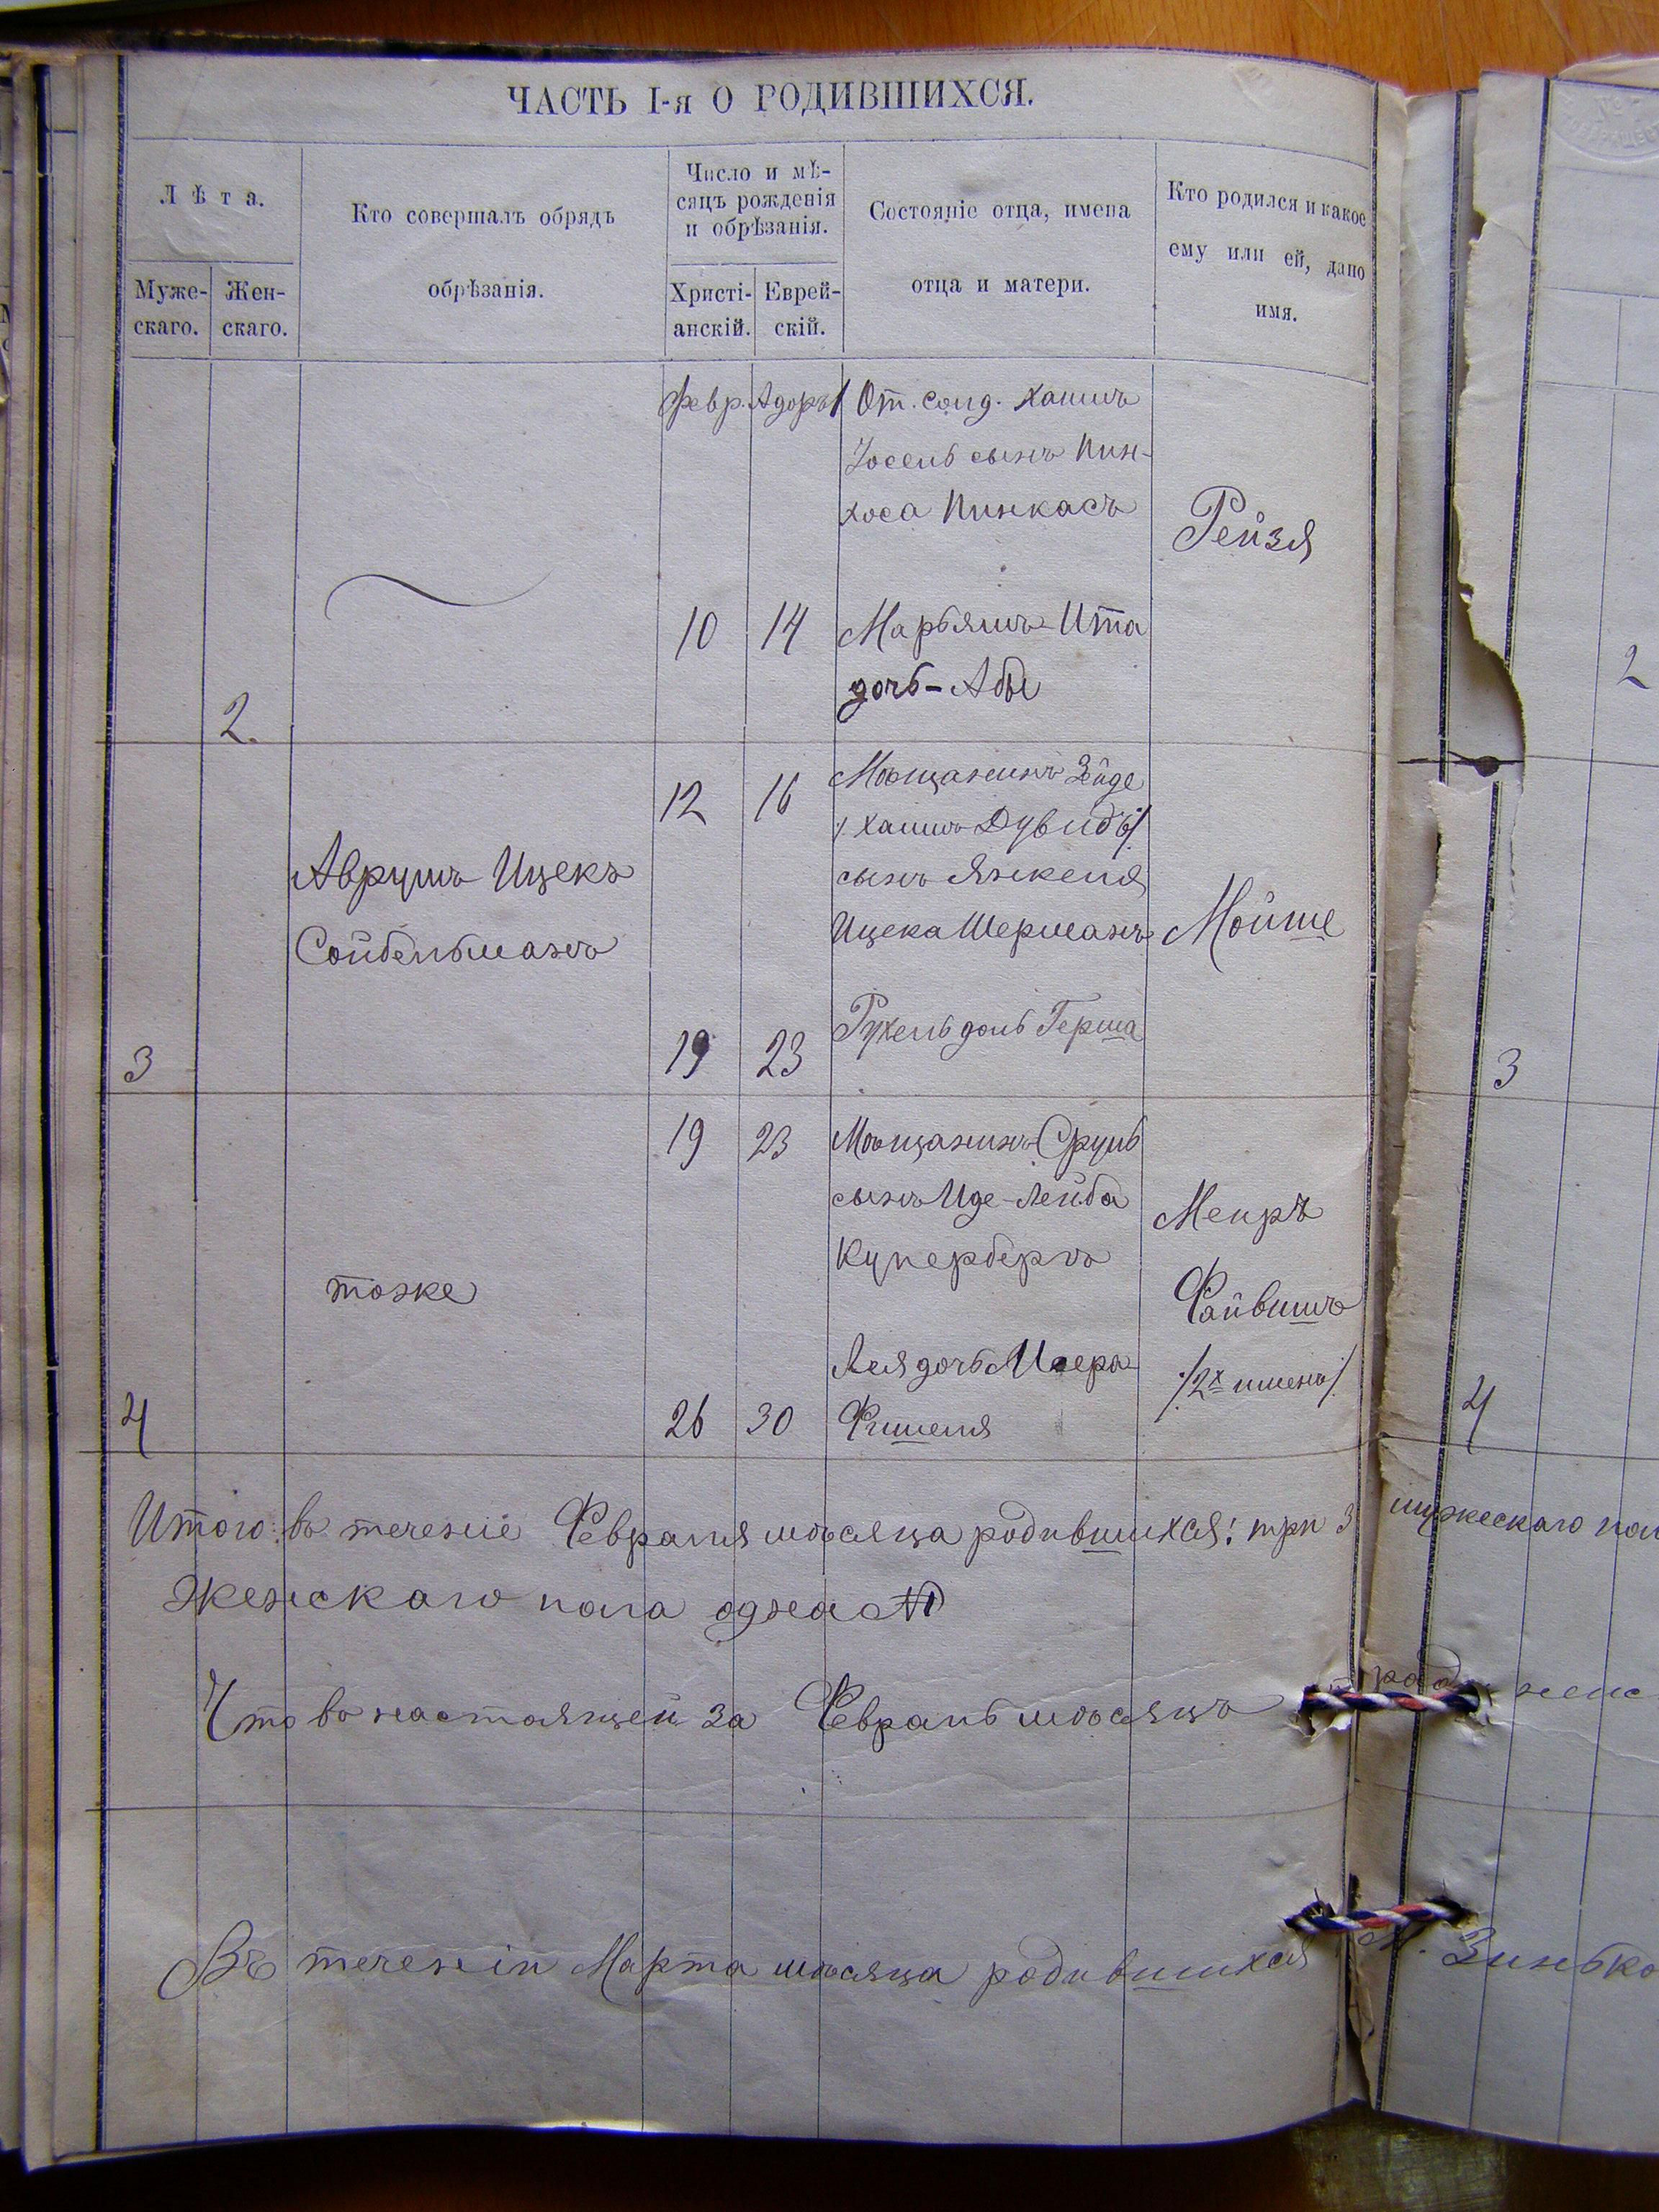 ЧАСТЬ I-я О РОДИВШИХСЯ.
Лѣта.
Муже-
скаго.
Жен-
скаго.
Кто совершалъ обрядъ
обрѣзанія.
Число и мѣ-
сяцъ рожденія
и обрѣзанія.
Христі-
анскій.
Еврей-
скій.
Состояніе отца, имена
отца и матери.
Кто родился и какое
ему или ей, дано
имя.
Февр. Адоръ
От. солд. Хаимъ
Іосель сынъ Пин-
хоса Пинкасъ
Рейзя
10 14 Марьямъ-Ита
дочь-Абы
2.
2
12 16 Мѣщанинъ Зейде
/Хаимъ Дувидъ/
Аврумъ Ицекъ
сынъ Янкеля
Сойбельманъ
Ицека Шерманъ
Мойше
Рухель дочь Герша
3 19 23
3
19 23 Мѣщанинъ Сруль
сынъ Иде-Лейба
Мееръ
Купербергъ
тоже
Файвишъ
Лея дочь Меера
/2х именъ/
4 26 30 Фишеля
4
Итого въ теченіе Февраля мѣсяца родившихся: три 3 мужескаго пол
Женскаго пола одна
Что въ настоящей за Февраль мѣсяцъ
Въ теченіи Марта мѣсяца родившихся м. Зинько